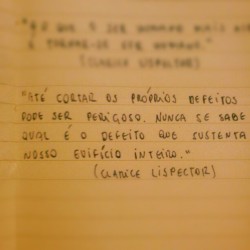 "O QUE O SER HUMANO MAIS
É TORNAR-SE SER HUMANO."
(CLARICE LISPECTOR)
"ATÉ CORTAR OS PRÓPRIOS DEFEITOS
PODE SER PERIGOSO. NUNCA SE SABE
QUAL É O DEFEITO QUE SUSTENTA
NOSSO EDIFÍCIO INTEIRO."
(CLARICE LISPECTOR)